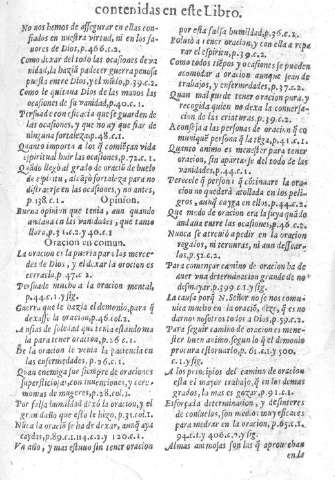 contenidas en este Libro.
No nos hemos de assegurar en ellas confiados en nuestra virtud, ni en los fauores de Dios, p.466.c.2.
Como dexar del todo las ocasiones de vanidad, la hazia padecer guerra penosa puesta entre Dios, y el mũdo, p.39.c.2.
Como le quitona Dios de las manos las ocasiones de su vanidad, p.40.c.1.
Persuade con eficacia que se guarden de las ocasiones, y que no ay que fiar de ninguna fortaleza, p.48.c.1.
Quanto importa a los q̃ comiẽçan vida espiritual huir las ocasiones, p.72.c.1.
Quãdo llegó al grado de oració de buelo de espiritu, alcãçó fortaleza para no distraerse en las ocasiones, y no antes, p.138.c.1.
Opinion.
Buena opinion que tenia, aun quando andaua en las vanidades, que tanto lloró, p.31.c.2.y 40.c.1
Oracion en comun.
La oracion es la puerta para las mercedes de Dios, y el dexar la oracion es cerrarla. p.47.c.2.
Persuade mucho a la oracion mental, p.44.c.1.y sig.
Guerra que le hazia el demonio, para q̃ dexasse la oracion, p.46.col.2.
Ansias de soledad que tenia estando mala para tener oracion, p.26 c.1
De la oracion le venia la paciencia en las enfermedades, p.26.c.1.
Quan enemiga fue siempre de oraciones supersticiosas, con inuenciones, y ceremonias de mugeres, p.28.col.1.
Por falsa humildad dexó la oracion, y el gran daño que esto le hizo, p.31.col.1.
Nũca la oracio se ha de dexar, aunq̃ aya caydas, p.89.c.1.114.c.2.y 120.c.1.
Vn año, y mas estuuo sin tener oracion
por esta falsa humildad, p.36.c.2.
Boluió a tener oracion, y con ella a reparar el espiritu, p.39.c.2.
Como todos tiẽpos y ocasiones se pueden acomodar a oracion aunque sean de trabajos, y enfermedades, p.37.c.2.
Quan mal puede tener oracion pura, y recogida quien no dexa la conuersacion de las criaturas, p.39.c.2.
Aconseja a las personas de oracion q̃ comuniquẽ persona que la tẽga, p.41.c.1.
Quanto animo es menester para tener oracion, sin apartarse del todo de las vanidades, p.44.c.1.
Parecele q̃ persona q̃ començare la oracion no quedará assolada en los peligros, aunq̃ cayga en ellos, p.44.c.2.
Que modo de oracion era la suya quãdo andaua entre las ocasiones, p.46.c.2.
Nunca se atreuió a pedir en la oracion regalos, ni ternuras, ni aun dessearlas, p.52.c.2.
Para començar camino de oracion ha de auer vna determinacion grande de no desmayar, p.399.c.1.y sig.
La causa porq̃ N.Señor no se nos comunica mucho en la oració, dize, q̃ es no darnos nosotros todos a Dios, p.57.c.2.
Para seguir camino de oracion es menester buen animo, segun lo q̃ el demonio procura estoruarlo, p.61.c.1.y 300.c.1.y sig.
A los principios del camino de oracion esta el mayor trabajo, q̃ en los demas grados, lo mas es gozar, p.91.c.1.
Esforçada determinacion, y desinteres de consuelos, son medios muy eficaces para medrar en la oracion, p.65.c.1. 94.c.1.y 406.c.2.y sig.
Almas animosas son las q̃ aprouechan
en la